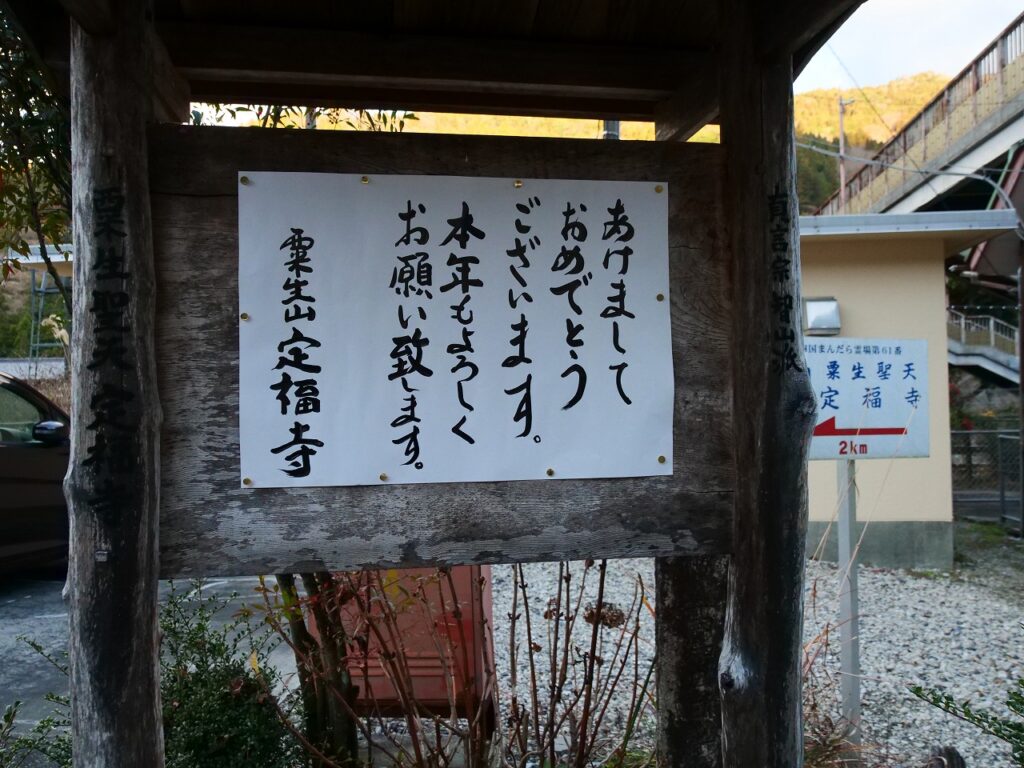 あけまして
おめでとう
ございます。
本年もよろしく
お願い致します。
粟生山定福寺
真言宗智山派
粟生聖天定福寺
国まんだら霊場第61番
粟生聖天
定福寺
2km